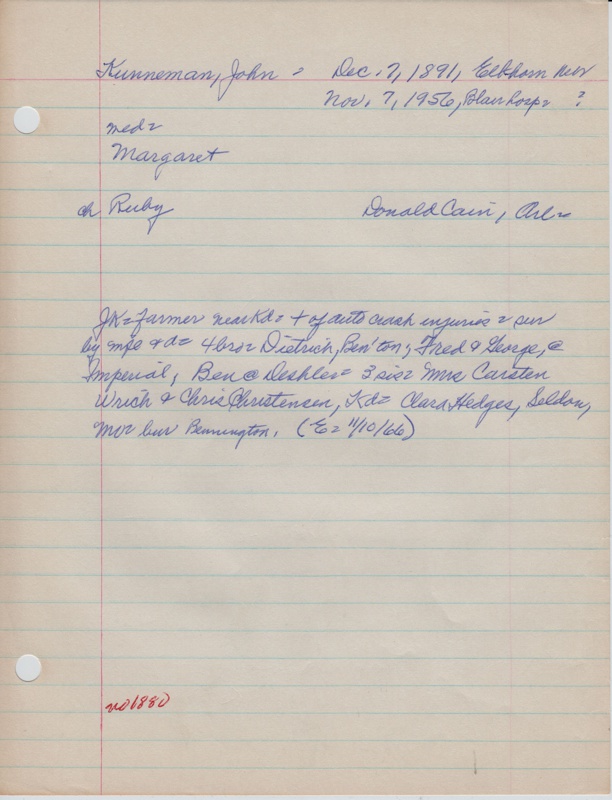 Kunneman, John = Dec. 7, 1891, Elkhorn
Nov. 7, 1956, Blair hosp= ?
med=
Margaret
ch Ruby Donald Cain, Arl=
JK= farmer near Kd= + of auto crash injuries = sur
by wife & d= 4 bro= Dietrich, Ben'ton; Fred & George, @
Imperial; Ben @ Deshler= 3 sis= Mrs Carsten
Wrich & Chris Christensen, Kd= Clara Hedges, Seldon,
Mo= bur Bennington. (E= 11/10/66)
no 1880